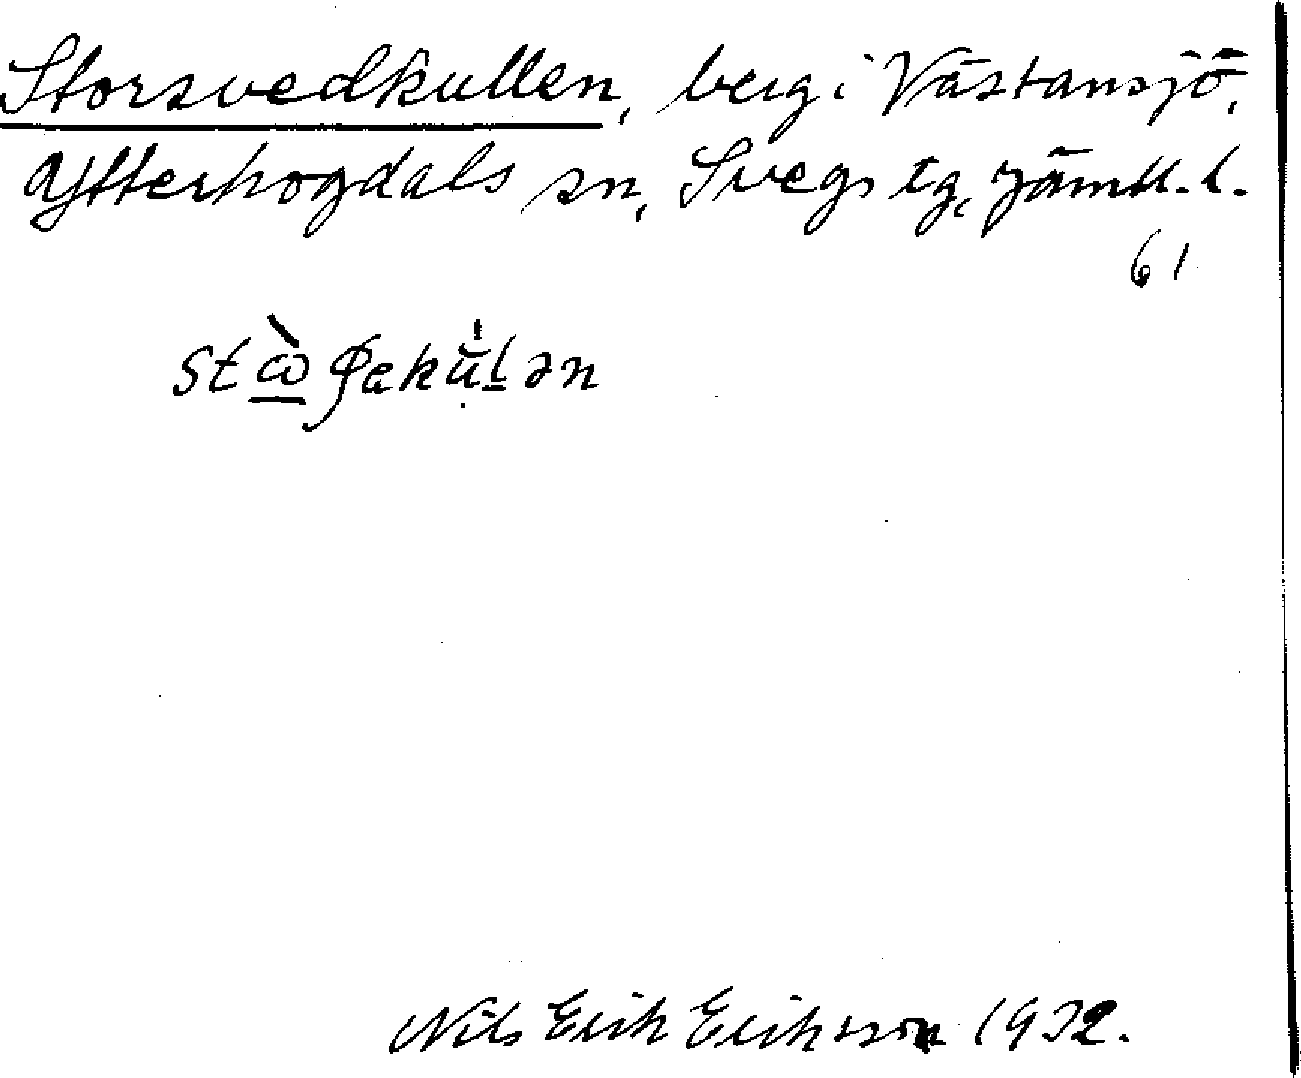 Storsvedkullen, berg i Västansjö,
Ytterhogdals sn, Svegs tg, Jämtl. l.
61
Nils Erik Eriksson 1932.